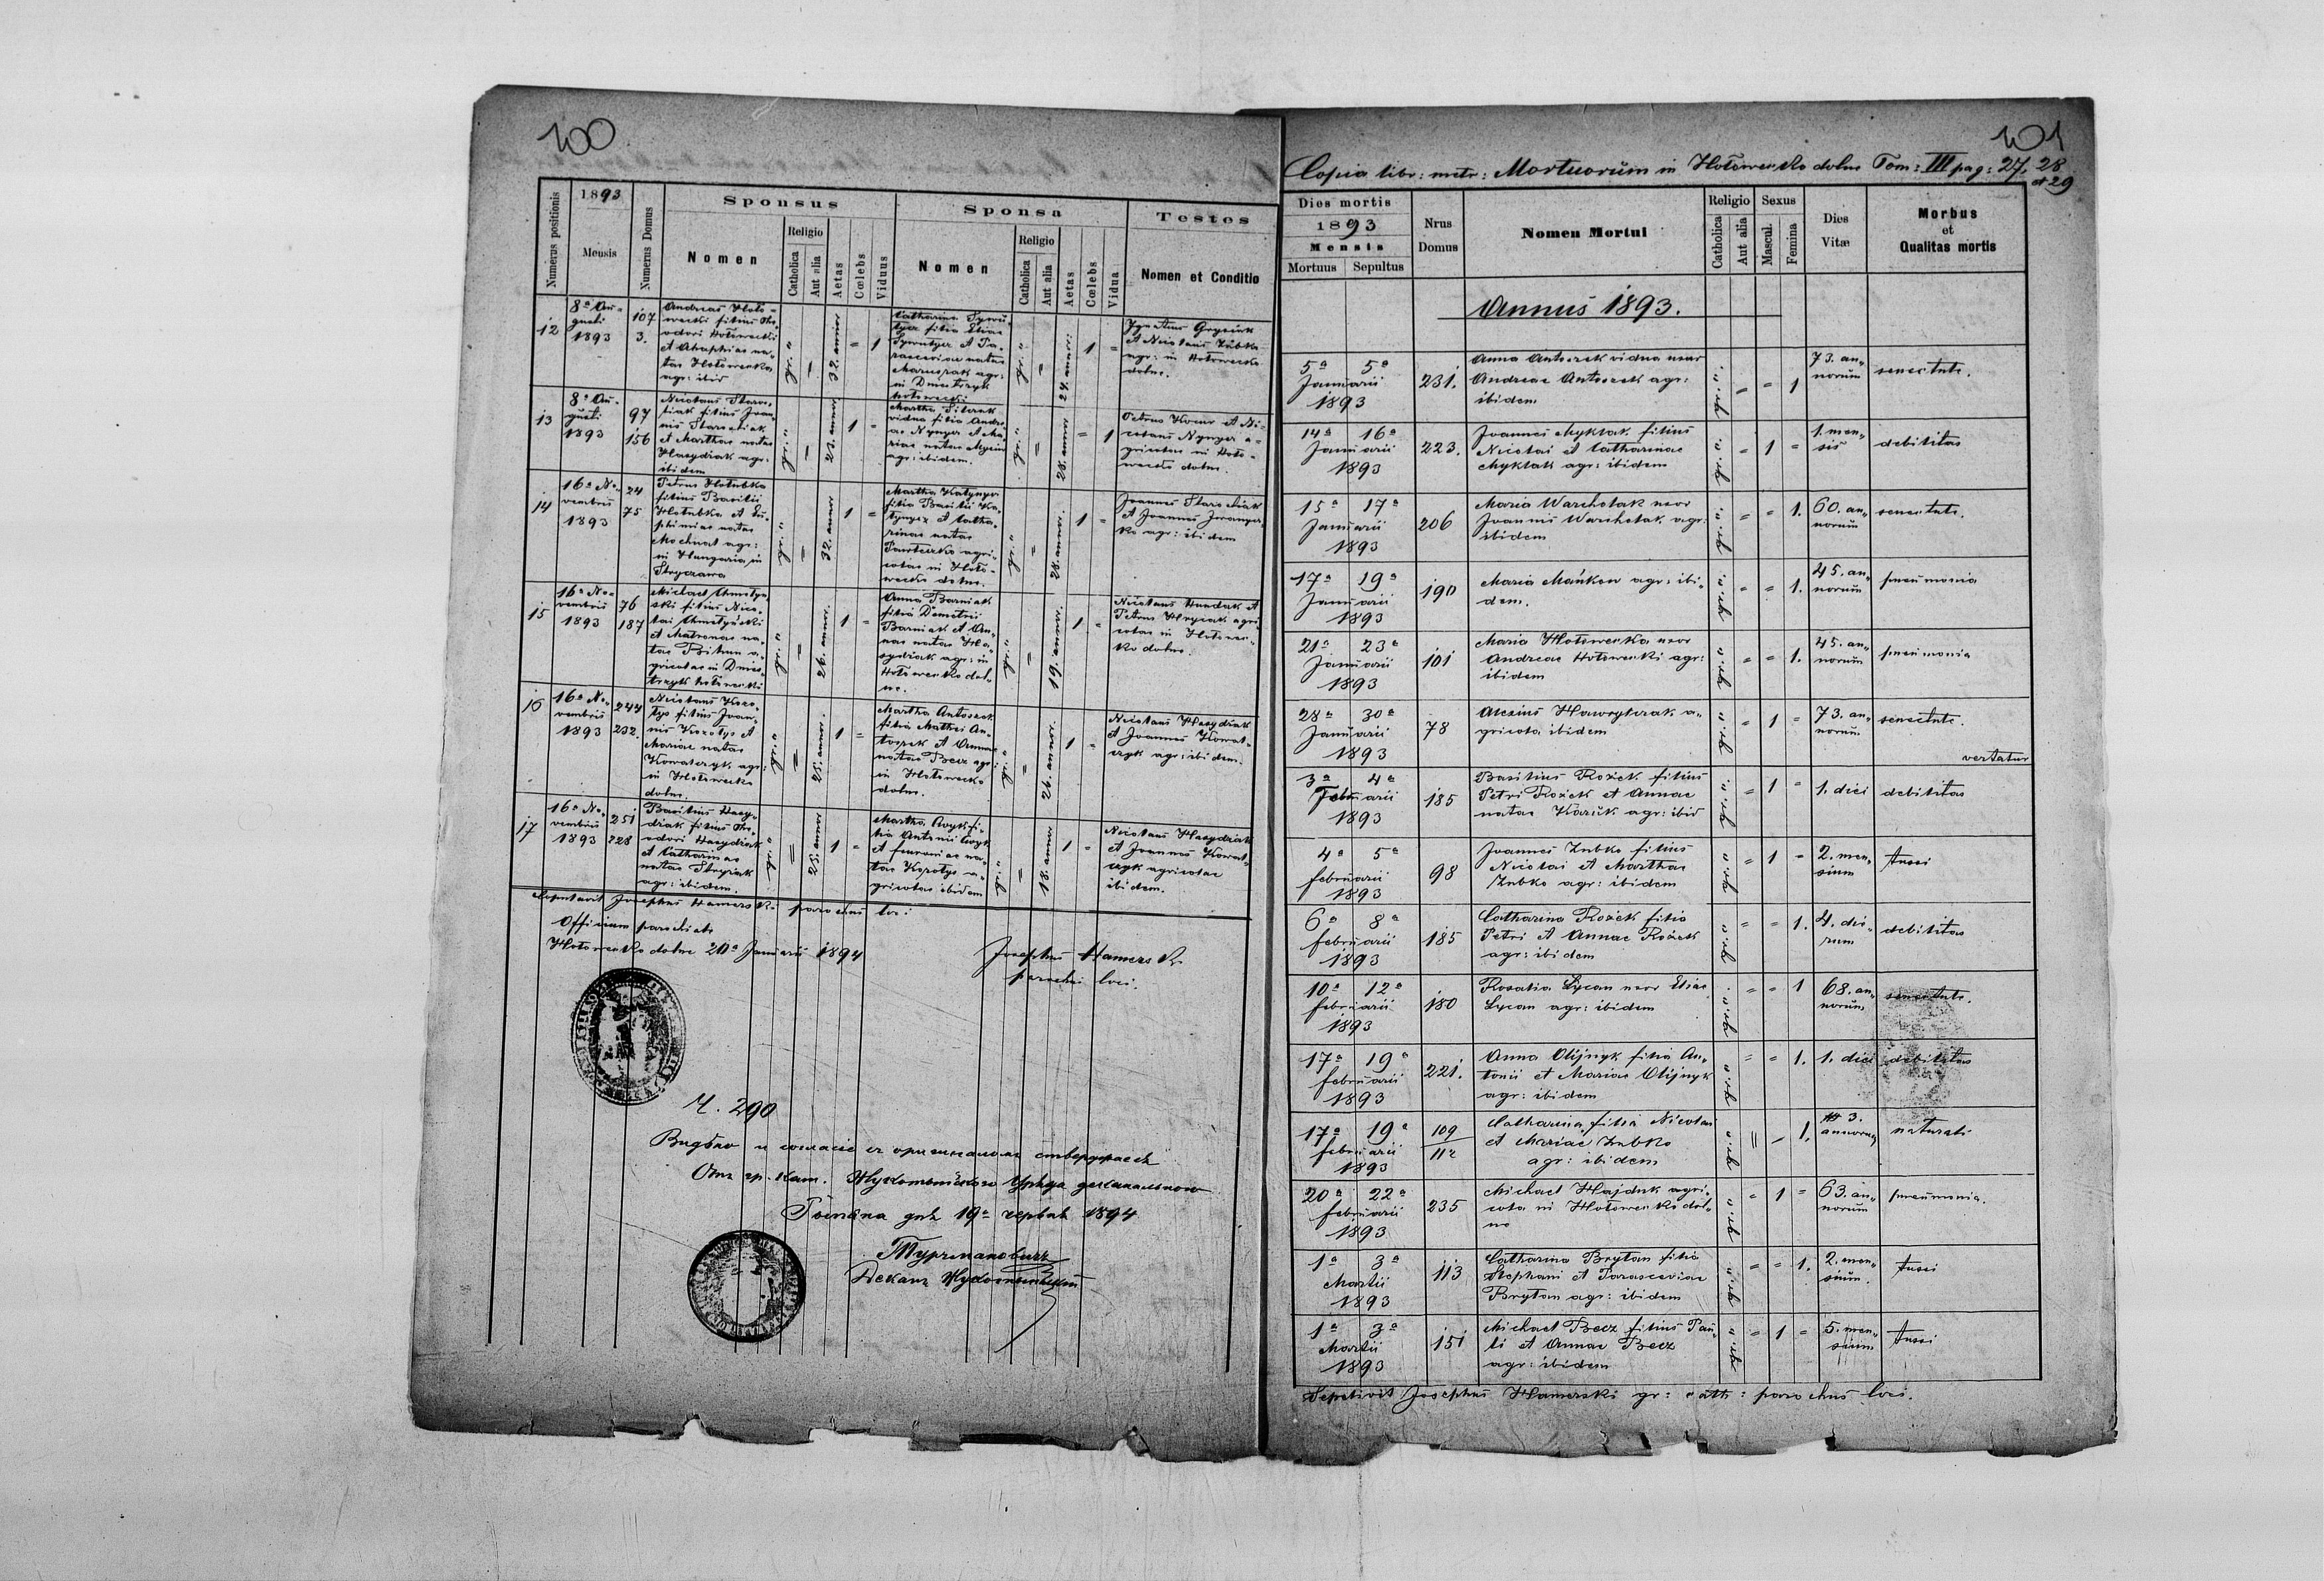 100
Numerus positionis
1893
Mensis
Numerus Domus
Sponsus
Nomen
Religio
Catholica
Aut alia
Aetas
Cœlebs
Viduus
Sponsa
Nomen
Religio
Catholica
Aut alia
Aetas
Cœlebs
Vidua
Testes
Nomen et Conditio
12
8ª Au-
gusti
1893
107
3.
Andreas Hoło-
wecki filius The-
odori Hołowecki
et Ahaphiae na-
tae Hołowecka
agr: ibid
gr: "
=
32. annor
=
1
Catharina
filia Eliae
et Pa-
rasceviae natae
agr:
in Dniestrzyk
hołowecki
gr: "
=
24. annor:
1
=
Ignatius Grysiuk
et Nicolaus Zubko
agr: in Hołowecko
dolne.
13
8ª Au-
gusti
1893
97
156
Nicolaus Staro-
filius Joan-
nis
et Marthae natae
Hasydiak agr:
ibidem
gr: "
=
1
=
Martha
vidua filia Andre-
ae Nynyer et Ma-
riae natae
agr: ibidem.
gr: "
=
28. annor
=
1
Petrus Kocur et Ni-
colaus Nynyer a-
gricolae in Hoło-
wecko dolne.
14
16ª No-
vembris
1893
24
75
Petrus Hołubka
filius Basilii
Hołubka et Eu-
phimiae natae
Mochnat agr:
in Hungaria in
gr: "
=
32. annor
1
=
Martha
filia Basilii
et Catha-
rinae natae
Pawluczko agri-
colae in Hoło-
wecko dolne.
gr: "
=
28. annor.
1
=
Joannes
et Joannes
ko agr: ibidem
15
16ª No-
vembris
1893
76
187
Michael
filius Nico-
lai
et Matronae na-
tae Bihun a-
gricolae in Dnies-
trzyk hołowecki
gr: "
=
26. annor.
1
=
Anna Barniak
filia Demetrii
Barniak et An-
nae natae Ha-
sydiak agr: in
Hołowecko dol-
ne.
gr: "
=
19. annor.
1
=
Nicolaus Hundak et
Petrus Hrycak agri-
colae in Hołowec-
ko dolne.
16
16ª No-
vembris
1893
244
232.
Nicolaus Koro-
tyo filius Joan-
nis Korotyo et
Mariae natae
Kowalczyk agr:
in Hołowecko
dolne.
gr: "
=
25. annor.
1
=
Martha Antoszek
filia Mathei An-
toszek et Annae
natae Becz agr:
in Hołowecko
dolne.
gr: "
=
26. annor.
1
=
Nicolaus Hasydiak
et Joannes Kowal-
czyk agr: ibidem.
17
16ª No-
vembris
1893
251
228
Basilius Hasy-
diak filius The-
odori Hasydiak
et Catharinae
natae
agr: ibidem.
gr: "
=
25. annor
1
=
Martha
filia Antonii
et na-
tae Korotyo a-
gricolae ibidem
gr: "
=
18. annor
1
=
Nicolaus Hasydiak
et Joannes Kowal-
czyk agricolae
ibidem.
Copulavit Josephus Hamerski parochus loci
Officium parochiale
Hołowecko dolne 20ª Januarii 1894
Josephus Hamerski
parochus loci.
Ч. 290
Видѣно и согласіе съ оригиналомъ стверджаесь
Отъ гр. кат. Жукотиньского Уряда деканального
дня 19ª червня 1894
Деканъ Жукотиньскій
101
Copia libr: metr: Mortuorum in Hołowecko dolne Tom: III pag: 27, 28
et 29
Dies mortis
1893
Mensis
Mortuus
Sepultus
Nrus
Domus
Nomen Mortui
Religio
Catholica
Aut alia
Sexus
Mascul.
Femina
Dies
Vitæ
Morbus
et
Qualitas mortis
Annus 1893.
5ª 5ª
Januarii
1893
231.
Anna Antoszek vidua uxor
Andreae Antoszek agr:
ibidem
=
=
1
73. an-
norum
senectute.
14ª 16ª
Januarii
1893
223.
Joannes Myklak filius
Nicolai et Catharinae
Myklak agr: ibidem
=
1
=
1. men-
sis
debilitas
15ª 17ª
Januarii
1893
206
Maria Warcholak uxor
Joannis Warcholak agr:
ibidem
=
=
1.
60. an-
norum
senectute.
17ª 19ª
Januarii
1893
190
Maria Mańkow agr: ibi-
dem.
=
=
1.
45. an-
norum
pneumonia
21ª 23ª
Januarii
1893
101
Maria Hołowecka uxor
Andreae Hołowecki agr:
ibidem
=
=
1.
45. an-
norum
pneumonia
28ª 30ª
Januarii
1893
78
Alexius Hawrylczak a-
gricola ibidem
=
1
=
73. an-
norum
senectute.
vertatur
3ª 4ª
Februarii
1893
185
Basilius Rożek filius
Petri Rożek et Annae
natae Kaziuk agr: ibid
=
1
=
1. diei
debilitas
4ª 5ª
februarii
1893
98
Joannes Zubko filius
Nicolai et Marthae
Zubko agr: ibidem
=
1
=
2. men-
sium
tussi
6ª 8ª
februarii
1893
185
Catharina Rożek filia
Petri et Annae Rożek
agr: ibidem
=
=
1.
4. die-
rum
debilitas
10ª 12ª
februarii
1893
180
Rosalia Łycan uxor Eliae
Łycan agr: ibidem
=
=
1
68. an-
norum
senectute.
17ª 19ª
februarii
1893
221.
Anna Olijnyk filia An-
tonii et Mariae Olijnyk
agr: ibidem
=
=
1.
1. diei
debilitas
17ª 19ª
februarii
1893
109
112
Catharina filia Nicolai
et Mariae Zubko
agr: ibidem
=
-
1.
3.
annorum
naturali
20ª 22ª
februarii
1893
235
Michael Hajduk agri-
cola in Hołowecko dol-
ne
=
1
=
63. an-
norum
pneumonia.
1ª 3ª
Martii
1893
113
Catharina Brytan filia
Stephani et Parasceviae
Brytan agr: ibidem
=
=
1.
2. men-
sium.
tussi
1ª 3ª
Martii
1893
151
Michael Becz filius Pau-
li et Annae Becz
agr: ibidem
=
1
=
5. men-
sium
tussi
Sepelivit Josephus Hamerski gr: cath: parochus loci.